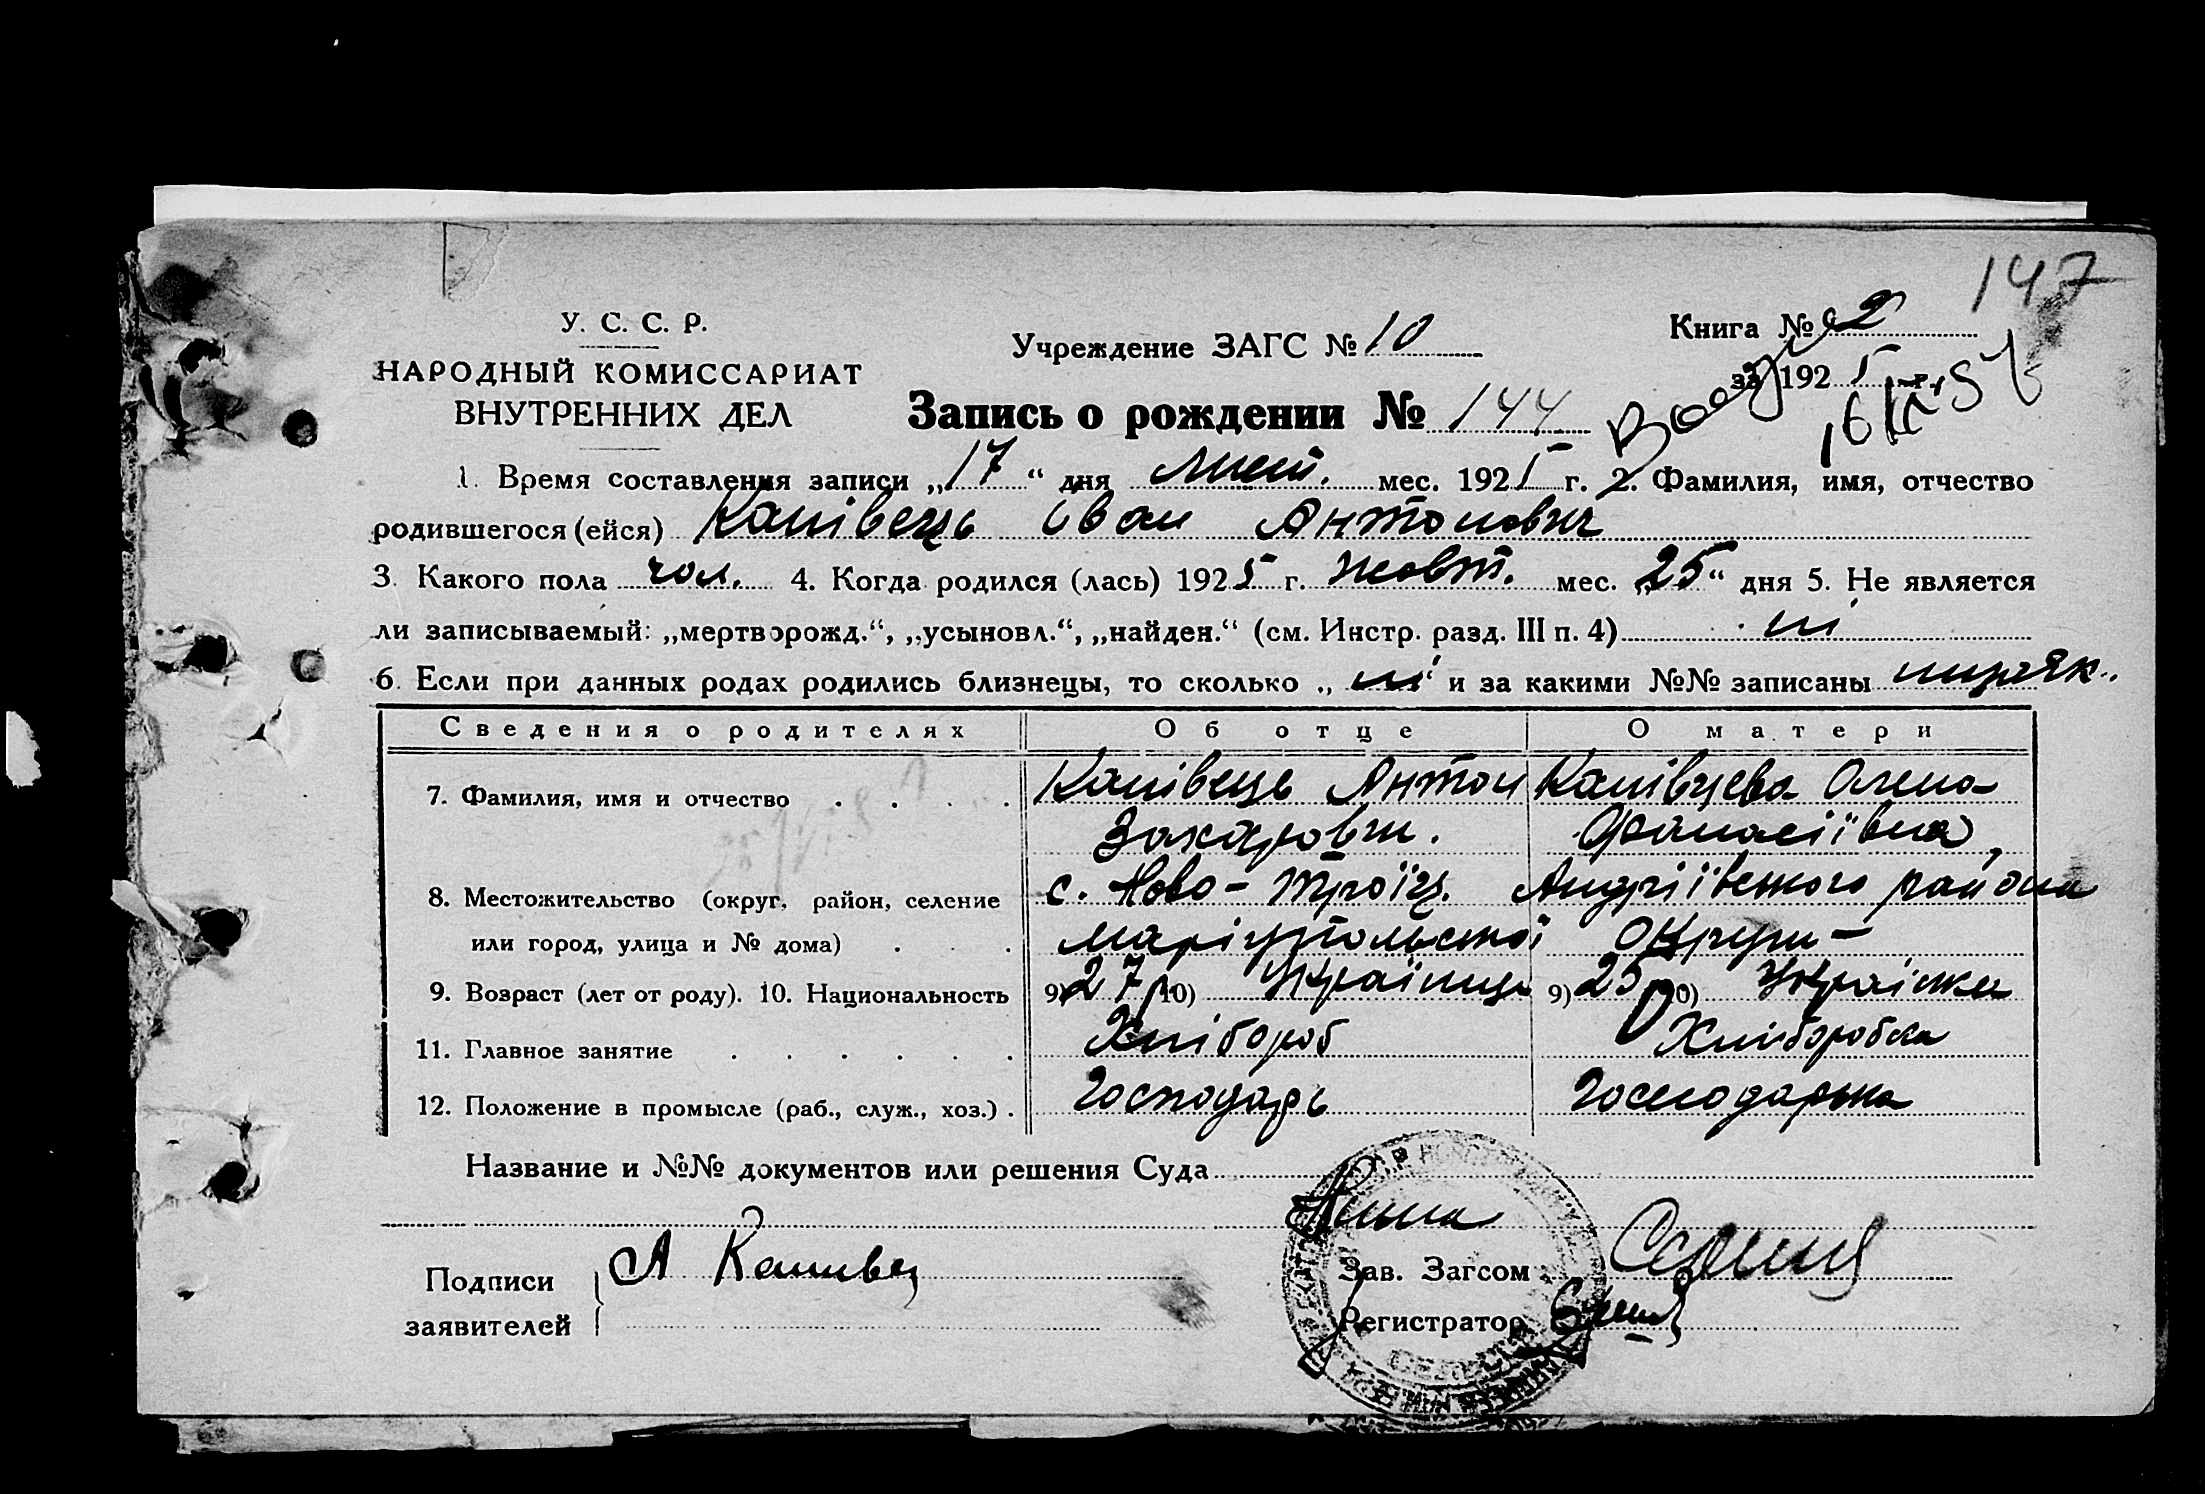 147
У. С. С. Р.
НАРОДНЫЙ КОМИССАРИАТ
ВНУТРЕННИХ ДЕЛ
Учреждение ЗАГС № 10
Книга № 2
за 1925 г.
Запись о рождении № 144
1. Время составления записи „17“ дня лист. мес. 1925 г. 2. Фамилия, имя, отчество
родившегося (ейся) Канівець Іван Антонович
3. Какого пола чол. 4. Когда родился (лась) 1925 г. жовт. мес. „25“ дня 5. Не является
ли записываемый: „мертворожд.“, „усыновл.“, „найден.“ (см. Инстр. разд. III п. 4) ні
6. Если при данных родах родились близнецы, то сколько „ні“ и за какими №№ записаны
Сведения о родителях Об отце О матери
7. Фамилия, имя и отчество Канівець Антон Канівцева Олена
Захарович. Афанасіївна,
8. Местожительство (округ, район, селение с. Ново-Троїц. Андріївського района
или город, улица и № дома) Маріупольської Округи-
9. Возраст (лет от роду). 10. Национальность 9) 27 р 10) Українець 9) 25 р 10) Українка
11. Главное занятие Хлібороб Хліборобка
12. Положение в промысле (раб., служ., хоз.) Господарь Господарька
Название и №№ документов или решения Суда
Подписи А Канивец
заявителей
Зав. Загсом
Регистратор